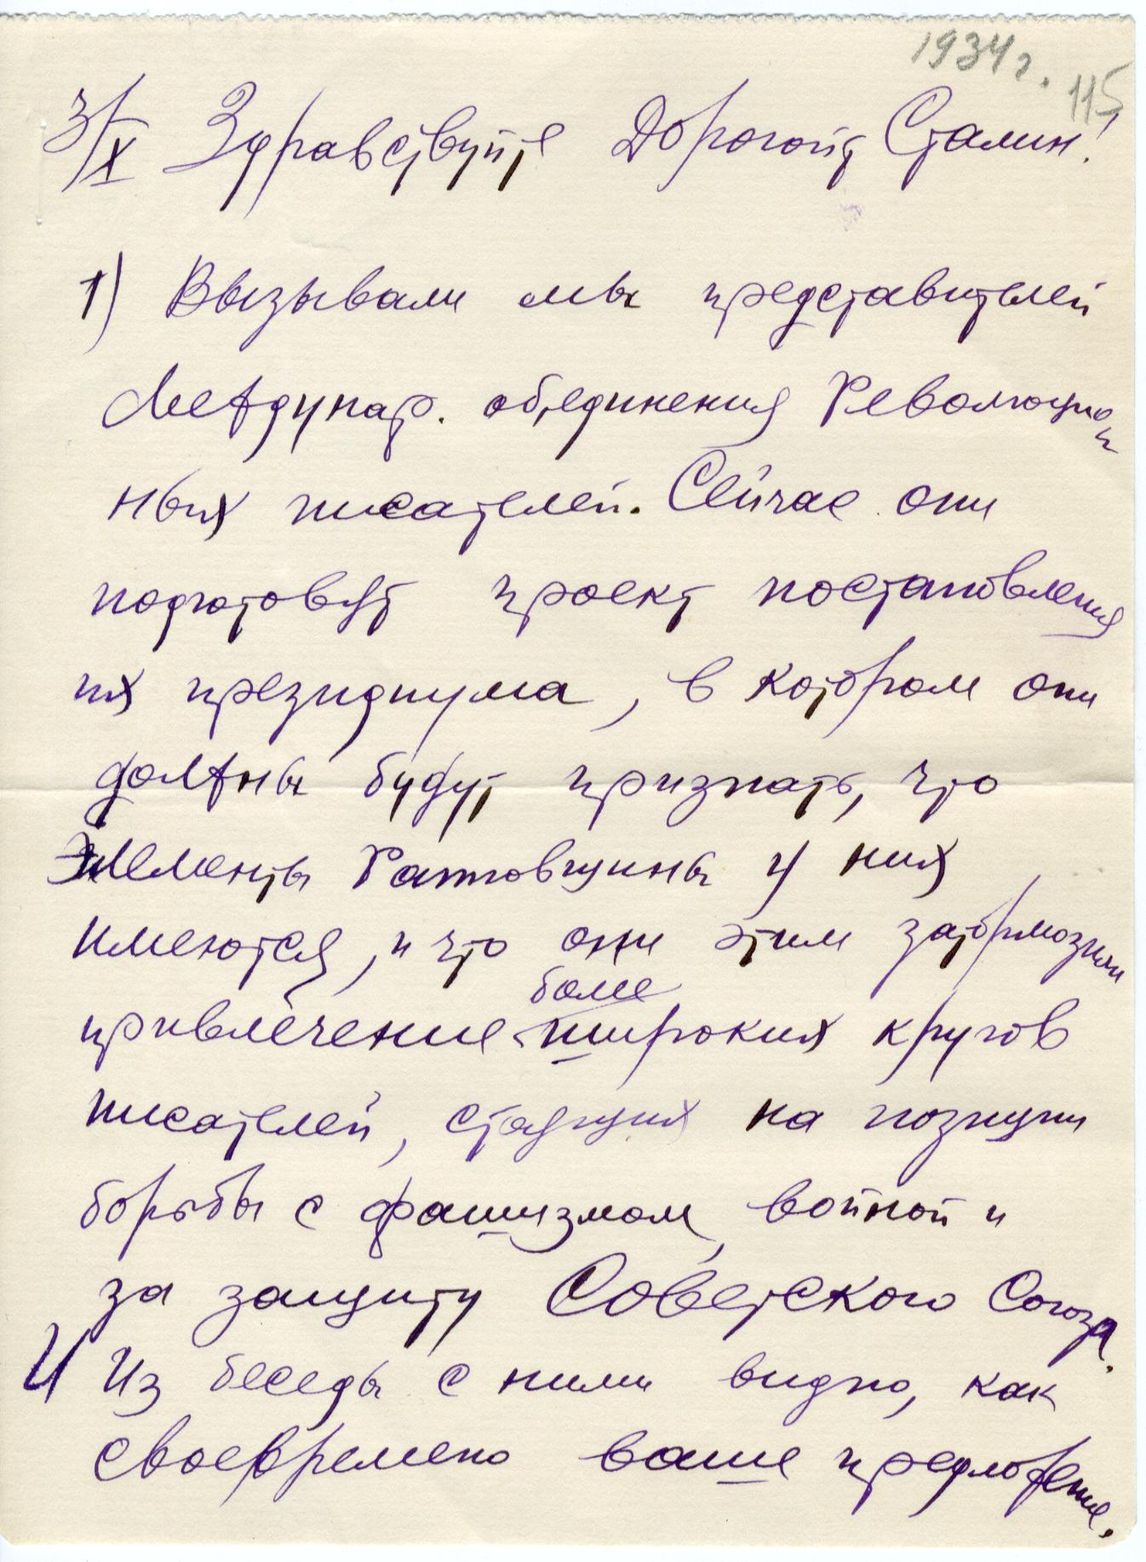 1934 г.
115
3/X Здравствуйте Дорогой Сталин!
1) Вызывали мы представителей
Междунар. объединения Революцион
ных писателей. Сейчас они
подготовят проект постановления
их президиума, в котором они
должны будут признать, что
элементы Рапповщины у них
имеются, и что они этим затормозили
более
привлечение широких кругов
писателей, стоящих на позиции
борьбы с фашизмом, войной и
за защиту Советского Союза.
Из беседы с ними видно, как
своевремено ваше предложение.